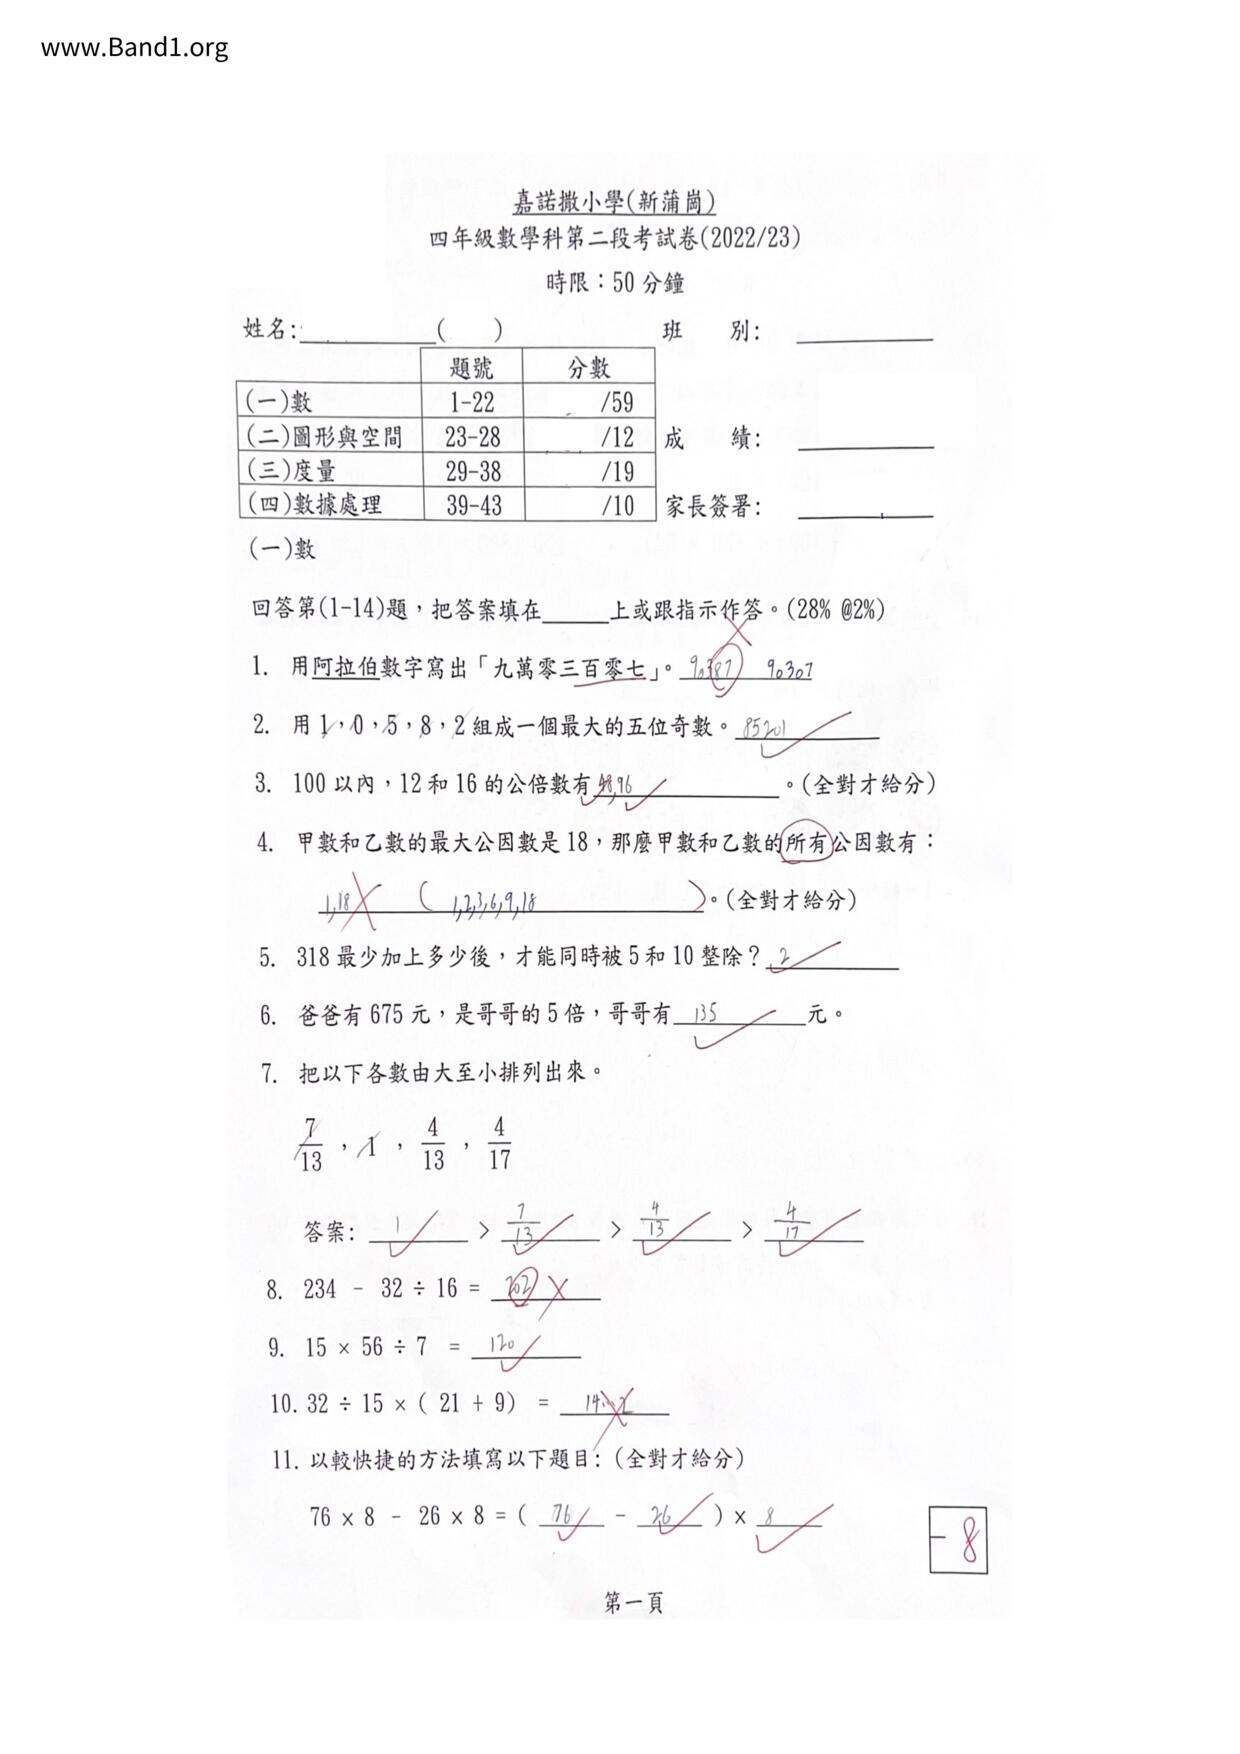 www.Band1.org
嘉諾撒小學(新蒲崗)
四年級數學科第二段考試卷(2022/23)
時限：50 分鐘
姓名:            (    )    班    別:
題號 分數
(一)數 1-22 /59
(二)圖形與空間 23-28 /12 成    績:
(三)度量 29-38 /19
(四)數據處理 39-43 /10 家長簽署:
(一)數
回答第(1-14)題，把答案填在_____上或跟指示作答。(28% @2%)
1. 用阿拉伯數字寫出「九萬零三百零七」。 90387 90307
2. 用 1，0，5，8，2 組成一個最大的五位奇數。 85201
3. 100 以內，12 和 16 的公倍數有 48,96 。(全對才給分)
4. 甲數和乙數的最大公因數是 18，那麼甲數和乙數的所有公因數有：
1,18 ( 1,2,3,6,9,18 )。(全對才給分)
5. 318 最少加上多少後，才能同時被 5 和 10 整除？ 2
6. 爸爸有 675 元，是哥哥的 5 倍，哥哥有 135 元。
7. 把以下各數由大至小排列出來。
7/13 ， 1 ， 4/13 ， 4/17
答案: 1 > 7/13 > 4/13 > 4/17
8. 234 - 32 ÷ 16 = 202
9. 15 × 56 ÷ 7 = 120
10. 32 ÷ 15 × ( 21 + 9) = 14...2
11. 以較快捷的方法填寫以下題目:(全對才給分)
76 × 8 - 26 × 8 = ( 76 - 26 ) × 8
-8
第一頁